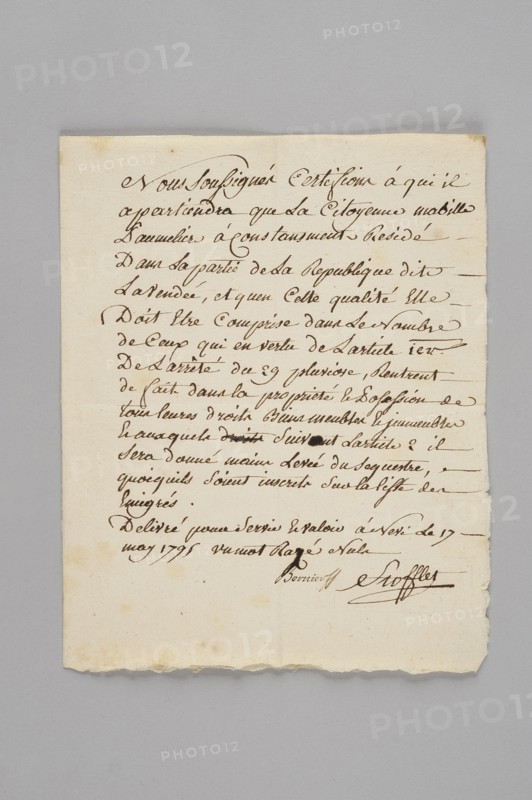 Nous Soussignés Certifions à qui il
apartiendra que La Citoyenne mabille
Daumelier à Constanment Residé
Dans La partie de La Republique dite
La vendée, et quen Cette qualité Elle
Doit Etre Comprise dans Le Nombre
de Ceux qui en vertu de Larticle 1er
De Larrêté du 29 pluviose, Rentrent
de fait dans la proprieté & Posession de
tous leures droits Biens meubles & immeubles
& auxquels droits Suivant Larticle 2 il
Sera donné main Levée du Sequestre,
quoiquils Soient inscrits Sur la liste des
Emigrés.
Délivré pour Servir & valoir à Le 17
may 1795 un mot Rayé Nul
Bernier Stofflet
PHOTO12